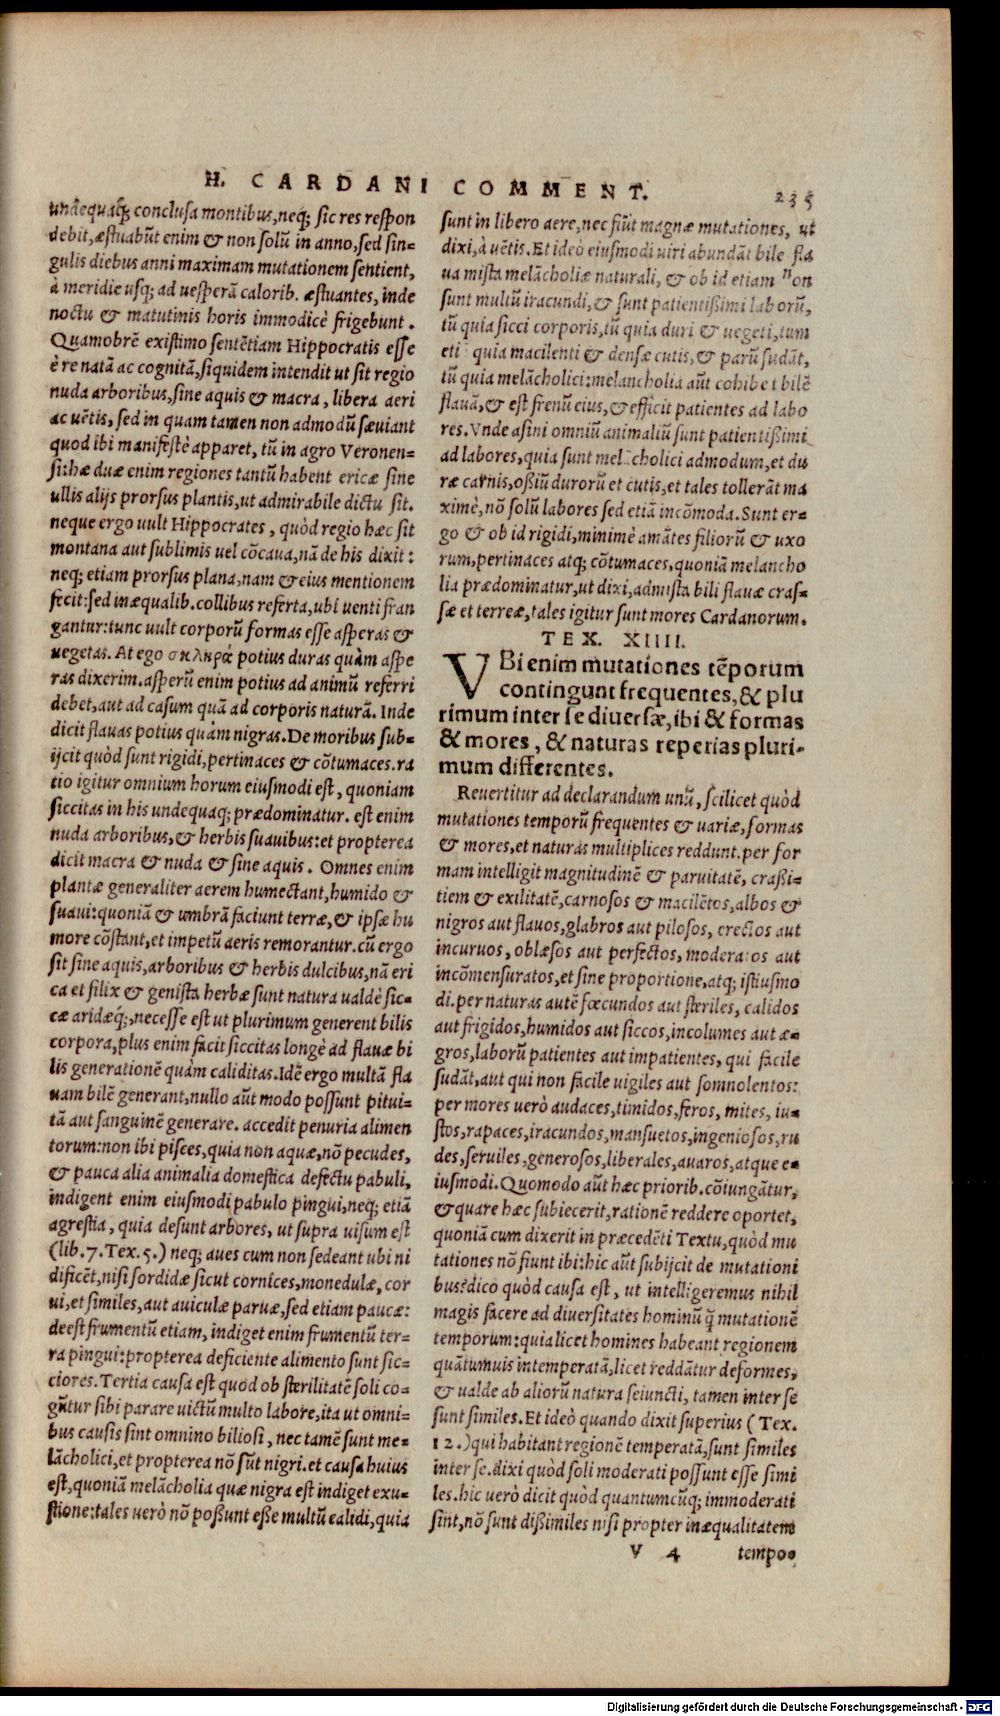 H. CARDANI COMMENT. 235
undequaq; conclusa montibus, neq; sic res respon
debit, æstuabũt enim & non solũ in anno, sed sin=
gulis diebus anni maximam mutationem sentient,
à meridie usq; ad uesperã calorib. æstuantes, inde
noctu & matutinis horis immodicè frigebunt.
Quamobrẽ existimo sentẽtiam Hippocratis esse
è re natã ac cognitã, siquidem intendit ut sit regio
nuda arboribus, sine aquis & macra, libera aeri
ac uẽtis, sed in quam tamen non admodũ sæuiant
quod ibi manifestè apparet, tũ in agro Veronen=
si: hæ duæ enim regiones tantũ habent ericæ sine
ullis alijs prorsus plantis, ut admirabile dictu sit.
neque ergo uult Hippocrates, quòd regio hæc sit
montana aut sublimis uel cõcaua, nã de his dixit:
neq; etiam prorsus plana, nam & eius mentionem
fecit: sed inæqualib. collibus referta, ubi uenti fran
gantur: tunc uult corporũ formas esse asperas &
uegetas. At ego σκληρά potius duras quàm aspe
ras dixerim. asperũ enim potius ad animũ referri
debet, aut ad casum quã ad corporis naturã. Inde
dicit flauas potius quàm nigras. De moribus sub=
ijcit quòd sunt rigidi, pertinaces & cõtumaces. ra
tio igitur omnium horum eiusmodi est, quoniam
siccitas in his undequaq; prædominatur. est enim
nuda arboribus, & herbis suauibus: et propterea
dicit macra & nuda & sine aquis. Omnes enim
plantæ generaliter aerem humectant, humido &
suaui: quoniã & umbrã faciunt terræ, & ipsæ hu
more cõstant, et impetũ aeris remorantur. cũ ergo
sit sine aquis, arboribus & herbis dulcibus, nã eri
ca et filix & genista herbæ sunt natura ualdè sic=
cæ aridæq;, necesse est ut plurimum generent bilis
corpora, plus enim facit siccitas longè ad flauæ bi
lis generationẽ quàm caliditas. Idẽ ergo multã fla
uam bilẽ generant, nullo aũt modo possunt pitui=
tã aut sanguinẽ generare. accedit penuria alimen
torum: non ibi pisces, quia non aquæ, nõ pecudes,
& pauca alia animalia domestica defectu pabuli,
indigent enim eiusmodi pabulo pingui, neq; etiã
agrestia, quia desunt arbores, ut supra uisum est
(lib. 7. Tex. 5.) neq; aues cum non sedeant ubi ni
dificẽt, nisi sordidæ sicut cornices, monedulæ, cor
ui, et similes, aut auiculæ paruæ, sed etiam paucæ:
deest frumentũ etiam, indiget enim frumentũ ter=
ra pingui: propterea deficiente alimento sunt sic=
ciores. Tertia causa est quod ob sterilitatẽ soli co=
gũtur sibi parare uictũ multo labore, ita ut omni=
bus causis sint omnino biliosi, nec tamẽ sunt me=
lãcholici, et propterea nõ sũt nigri. et causa huius
est, quoniã melãcholia quæ nigra est indiget exu=
stione: tales uerò nõ possunt esse multũ calidi, quia
sunt in libero aere, nec fiũt magnæ mutationes, ut
dixi, à uẽtis. Et ideò eiusmodi uiri abundãt bile fla
ua mista melãcholiæ naturali, & ob id etiam non
sunt multũ iracundi, & sunt patientissimi laborũ,
tũ quia sicci corporis, tũ quia duri & uegeti, tum
eti quia macilenti & densæ cutis, & parũ sudãt,
tũ quia melãcholici: melancholia aũt cohibet bilẽ
flauã, & est frenũ eius, & efficit patientes ad labo
res. Vnde asini omniũ animaliũ sunt patientissimi
ad labores, quia sunt mel cholici admodum, et du
ræ carnis, ossiũ durorũ et cutis, et tales tollerãt ma
ximè, nõ solũ labores sed etiã incõmoda. Sunt er=
go & ob id rigidi, minimè amãtes filiorũ & uxo
rum, pertinaces atq; cõtumaces, quoniã melancho
lia prædominatur, ut dixi, admista bili flauæ cras=
sæ et terreæ, tales igitur sunt mores Cardanorum.
TEX. XIIII.
VBi enim mutationes tẽporum
contingunt frequentes, & plu
rimum inter se diuersæ, ibi & formas
& mores, & naturas reperias pluri-
mum differentes.
Reuertitur ad declarandum unũ, scilicet quòd
mutationes temporũ frequentes & uariæ, formas
& mores, et naturas multiplices reddunt. per for
mam intelligit magnitudinẽ & paruitatẽ, crassi=
tiem & exilitatẽ, carnosos & macilẽtos, albos &
nigros aut flauos, glabros aut pilosos, erectos aut
incuruos, oblæsos aut perfectos, moderatos aut
incõmensuratos, et sine proportione, atq; istiusmo
di. per naturas autẽ fœcundos aut steriles, calidos
aut frigidos, humidos aut siccos, incolumes aut æ=
gros, laborũ patientes aut impatientes, qui facile
sudãt, aut qui non facile uigiles aut somnolentos:
per mores uerò audaces, timidos, feros, mites, iu=
stos, rapaces, iracundos, mansuetos, ingeniosos, ru
des, seruiles, generosos, liberales, auaros, atque e=
iusmodi. Quomodo aũt hæc priorib. cõiungãtur,
& quare hæc subiecerit, rationẽ reddere oportet,
quoniã cum dixerit in præcedẽti Textu, quòd mu
tationes nõ fiunt ibi: hic aũt subijcit de mutationi
bus? dico quòd causa est, ut intelligeremus nihil
magis facere ad diuersitates hominũ q̃ mutationẽ
temporum: quia licet homines habeant regionem
quãtumuis intemperatã, licet reddãtur deformes,
& ualde ab aliorũ natura seiuncti, tamen inter se
sunt similes. Et ideò quando dixit superius (Tex.
12.) qui habitant regionẽ temperatã, sunt similes
inter se. dixi quòd soli moderati possunt esse simi
les. hic uerò dicit quòd quantumcũq; immoderati
sint, nõ sunt dissimiles nisi propter inæqualitatem
V 4 tempo=
Digitalisierung gefördert durch die Deutsche Forschungsgemeinschaft - DFG